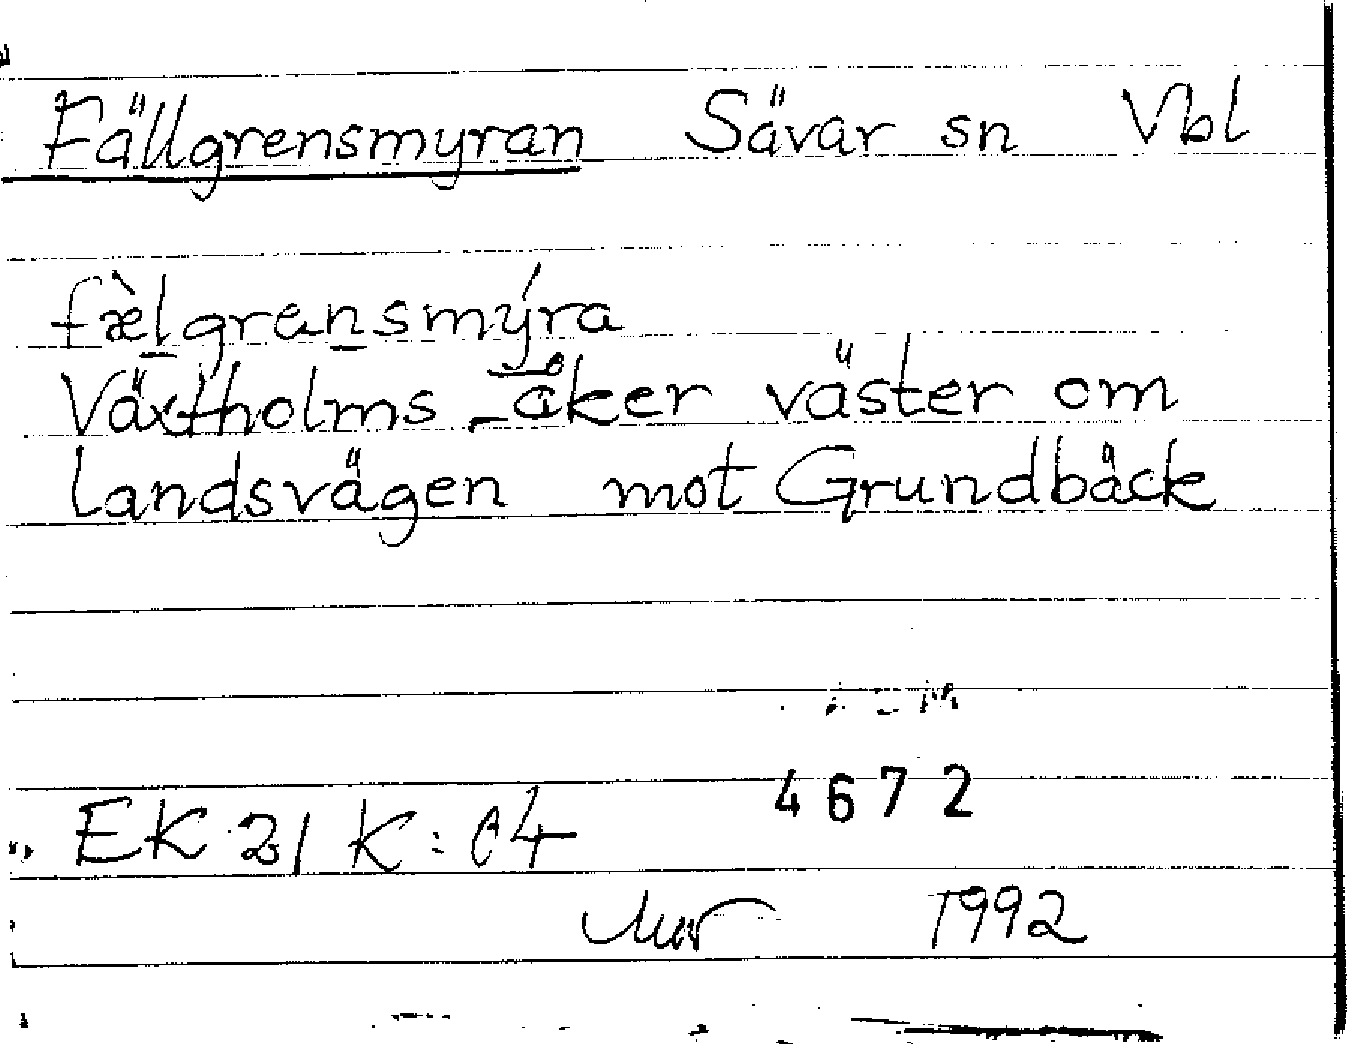 Fällgrensmyran Sävar sn Vbl
fæ̀lgrensmýra
Växtholms -åker väster om
landsvägen mot Grundbäck
4672
EK 21 K: C4
1992